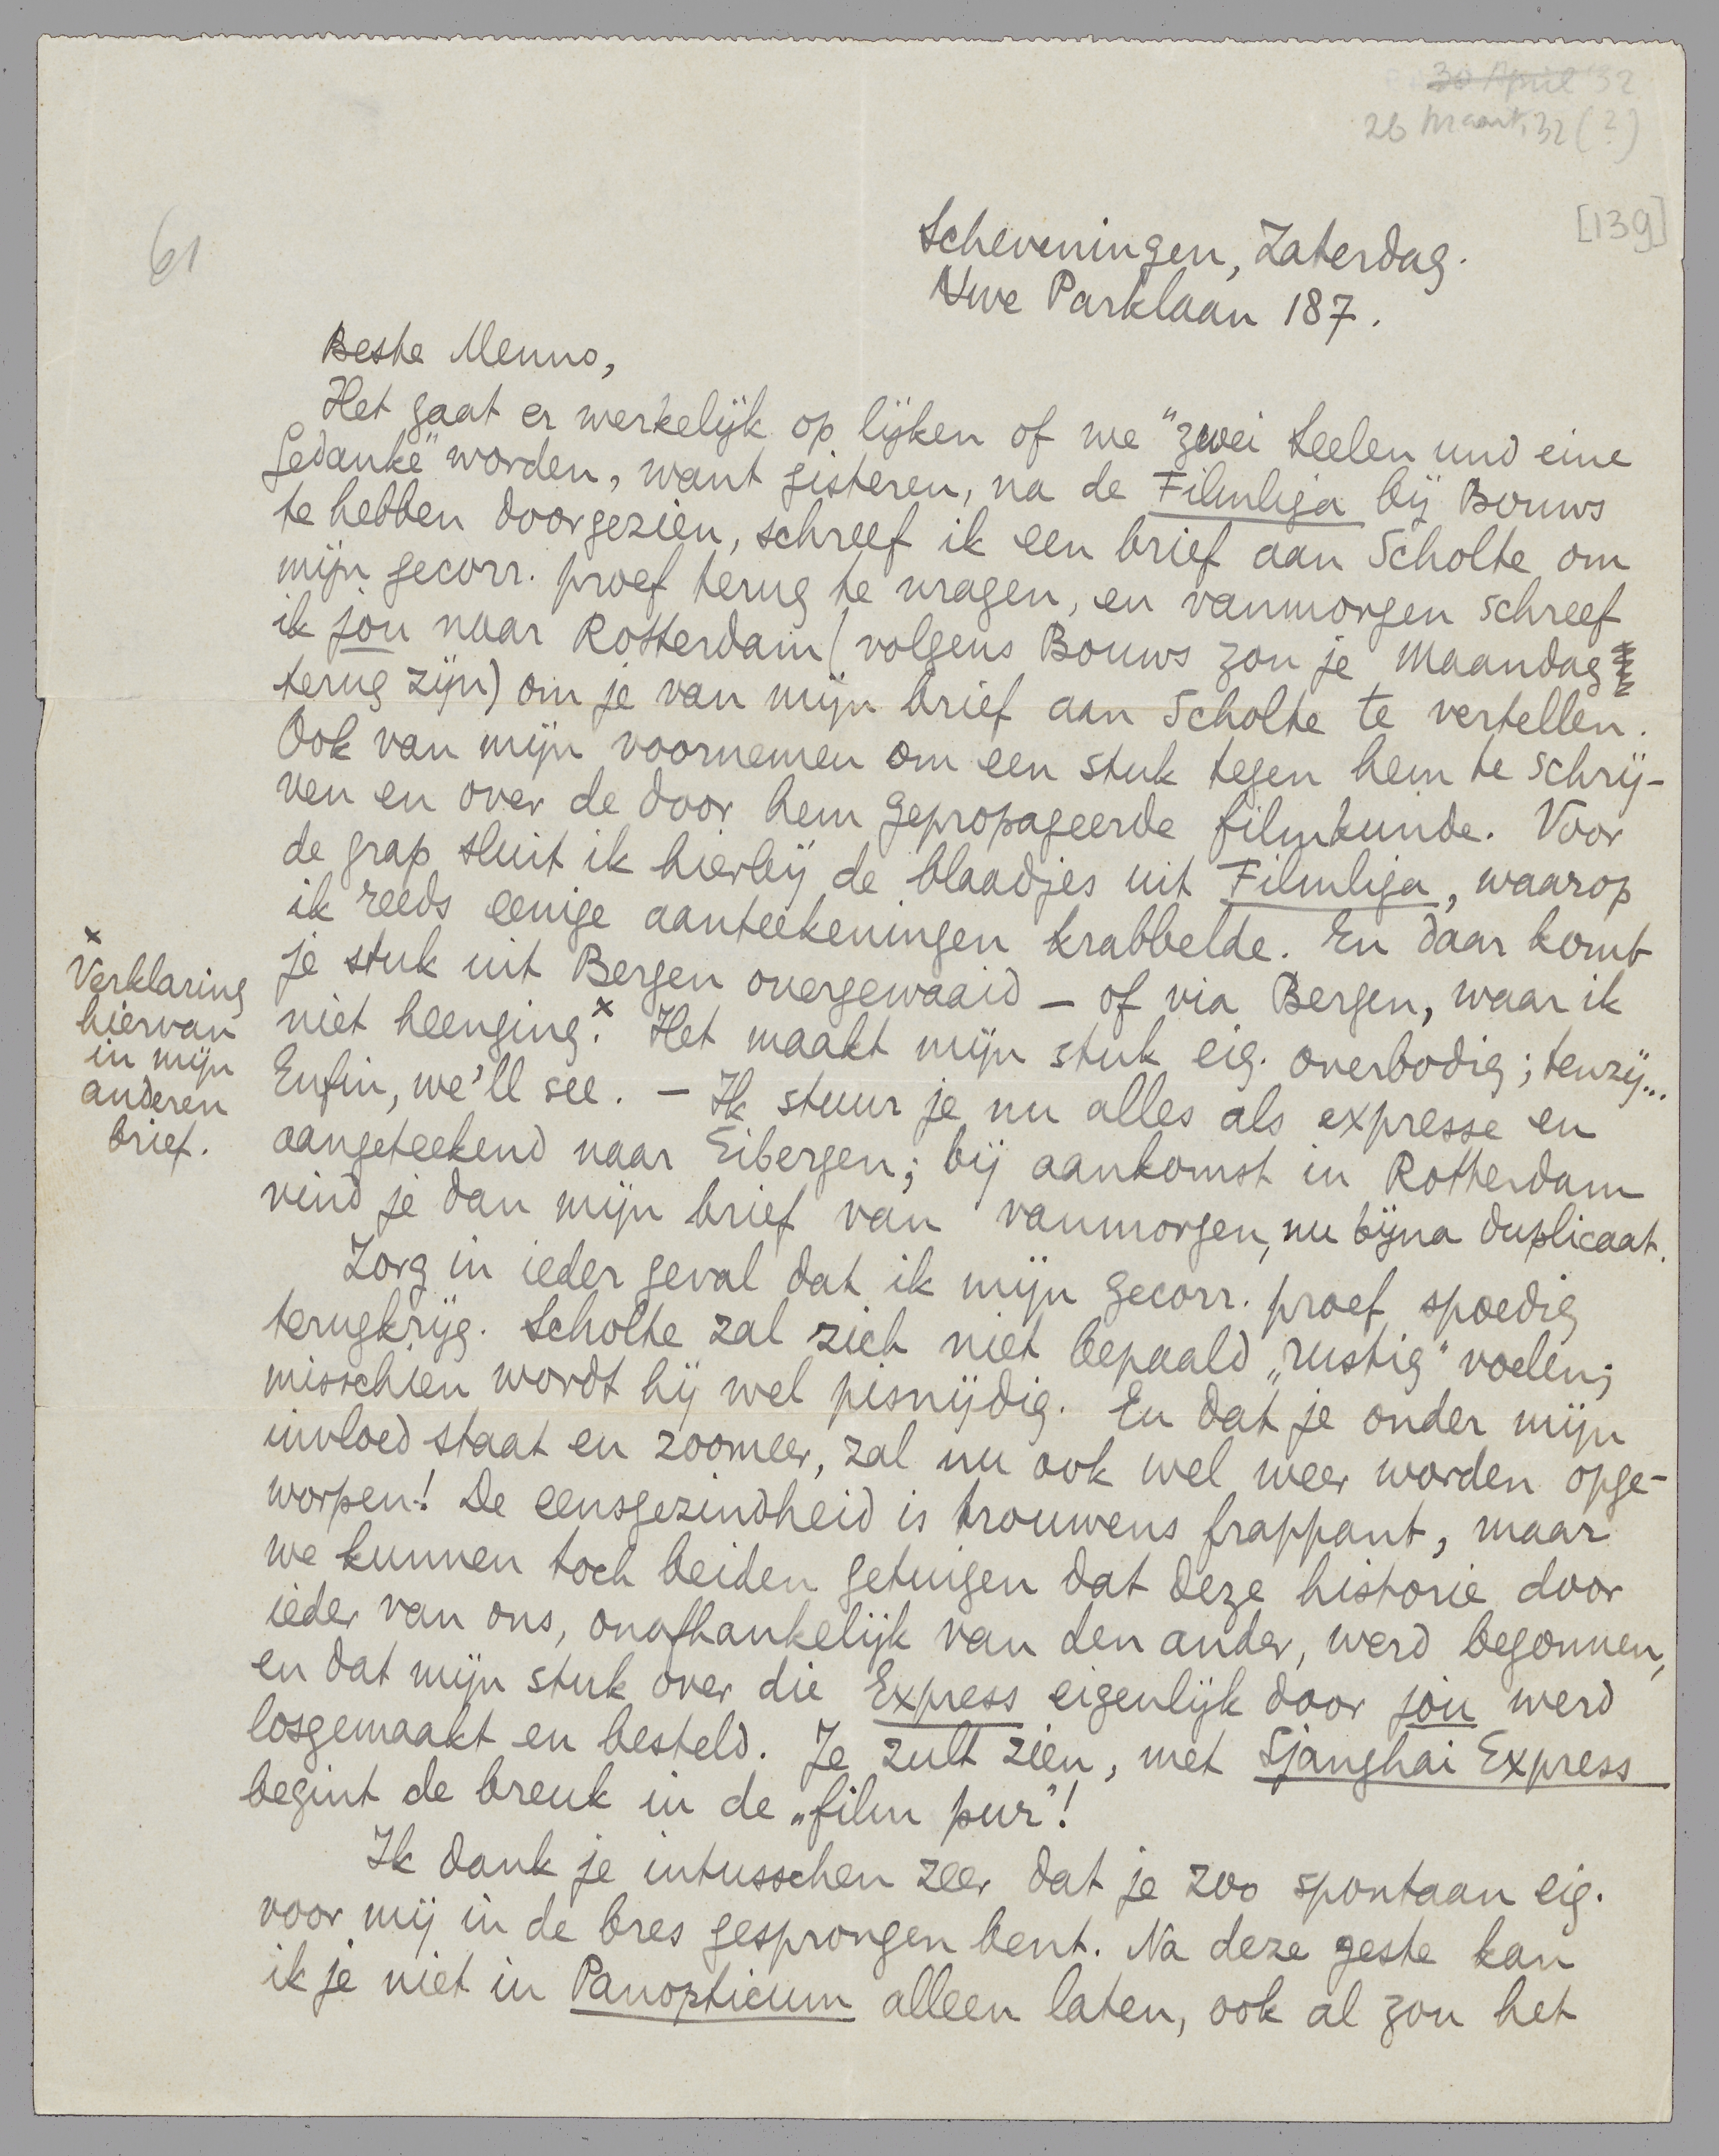 30 April '32
26 Maart '32 (?)
[139]
61
Scheveningen, Zaterdag.
Nwe Parklaan 187.
Beste Menno,
Het gaat er werkelijk op lijken of we "zwei Seelen und eine
Gedanke" worden, want gisteren, na de Filmliga bij Bouws
te hebben doorgezien, schreef ik een brief aan Scholte om
mijn gecorr. proef terug te vragen, en vanmorgen schreef
ik jou naar Rotterdam (volgens Bouws zou je Maandag
terug zijn) om je van mijn brief aan Scholte te vertellen.
Ook van mijn voornemen om een stuk tegen hem te schrij-
ven en over de door hem gepropageerde filmkunde. Voor
de grap sluit ik hierbij de blaadjes uit Filmliga, waarop
ik reeds eenige aanteekeningen krabbelde. En daar komt
je stuk uit Bergen overgewaaid – of via Bergen, waar ik
niet heenging.x Het maakt mijn stuk eig. overbodig; tenzij...
Enfin, we'll see. – Ik stuur je nu alles als expresse en
aangeteekend naar Eibergen; bij aankomst in Rotterdam
vind je dan mijn brief van vanmorgen, nu bijna duplicaat.
x
Verklaring
hiervan
in mijn
anderen
brief.
Zorg in ieder geval dat ik mijn gecorr. proef spoedig
terugkrijg. Scholte zal zich niet bepaald „rustig" voelen;
misschien wordt hij wel pisnijdig. En dat je onder mijn
invloed staat en zoomeer, zal nu ook wel weer worden opge-
worpen! De eensgezindheid is trouwens frappant, maar
we kunnen toch beiden getuigen dat deze historie door
ieder van ons, onafhankelijk van den ander, werd begonnen,
en dat mijn stuk over die Express eigenlijk door jou werd
losgemaakt en besteld. Je zult zien, met Sjanghai Express
begint de breuk in de „film pur"!
Ik dank je intusschen zeer dat je zoo spontaan eig.
voor mij in de bres gesprongen bent. Na deze geste kan
ik je niet in Panopticum alleen laten, ook al zou het